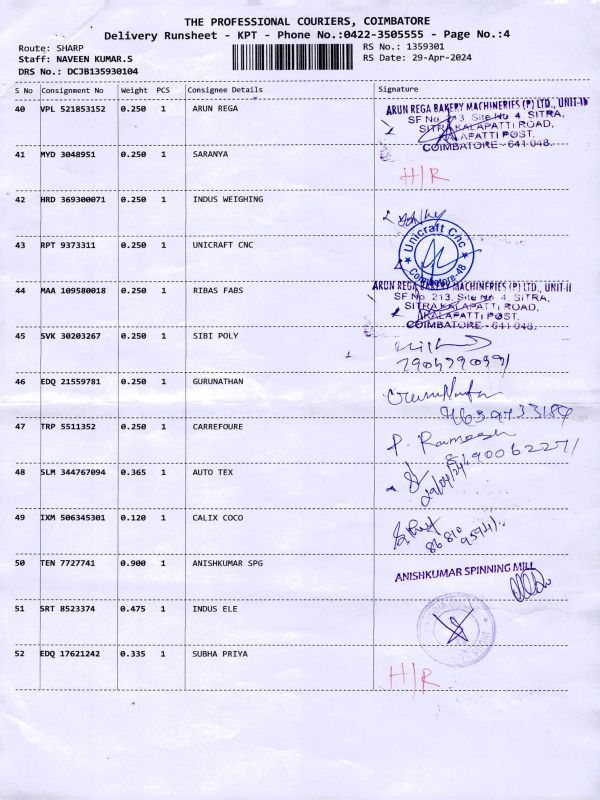 THE PROFESSIONAL COURIERS, COIMBATORE
Delivery Runsheet - KPT - Phone No.:0422-3505555 - Page No.:4
Route: SHARP
RS No.: 1359301
Staff: NAVEEN KUMAR.S
RS Date: 29-Apr-2024
DRS No.: DCJB135930104
S No Consignment No Weight PCS Consignee Details Signature
40 VPL 521853152 0.250 1 ARUN REGA
ARUN REGA BAKERY MACHINERIES (P) LTD., UNIT-II
SF No. 213 Site No 4 SITRA,
SITRA KALAPATTI ROAD,
KALAPATTI POST.
COIMBATORE - 641 048.
41 MYD 3048951 0.250 1 SARANYA
H/R
42 HRD 369300071 0.250 1 INDUS WEIGHING
43 RPT 9373311 0.250 1 UNICRAFT CNC
Unicraft Cnc
Coimbatore-48
44 MAA 109580018 0.250 1 RIBAS FABS
ARUN REGA BAKERY MACHINERIES (P) LTD., UNIT-II
SF No 213, Site No 4, SITRA,
SITRA KALAPATTI ROAD,
KALAPATTI POST.
COIMBATORE - 641 048.
45 SVK 30203267 0.250 1 SIBI POLY
46 EDQ 21559781 0.250 1 GURUNATHAN
47 TRP 5511352 0.250 1 CARREFOURE
P. Rameesh
48 SLM 344767094 0.365 1 AUTO TEX
29/04/24
49 IXM 506345301 0.120 1 CALIX COCO
50 TEN 7727741 0.900 1 ANISHKUMAR SPG
ANISHKUMAR SPINNING MILL
51 SRT 8523374 0.475 1 INDUS ELE
52 EDQ 17621242 0.335 1 SUBHA PRIYA
H/R